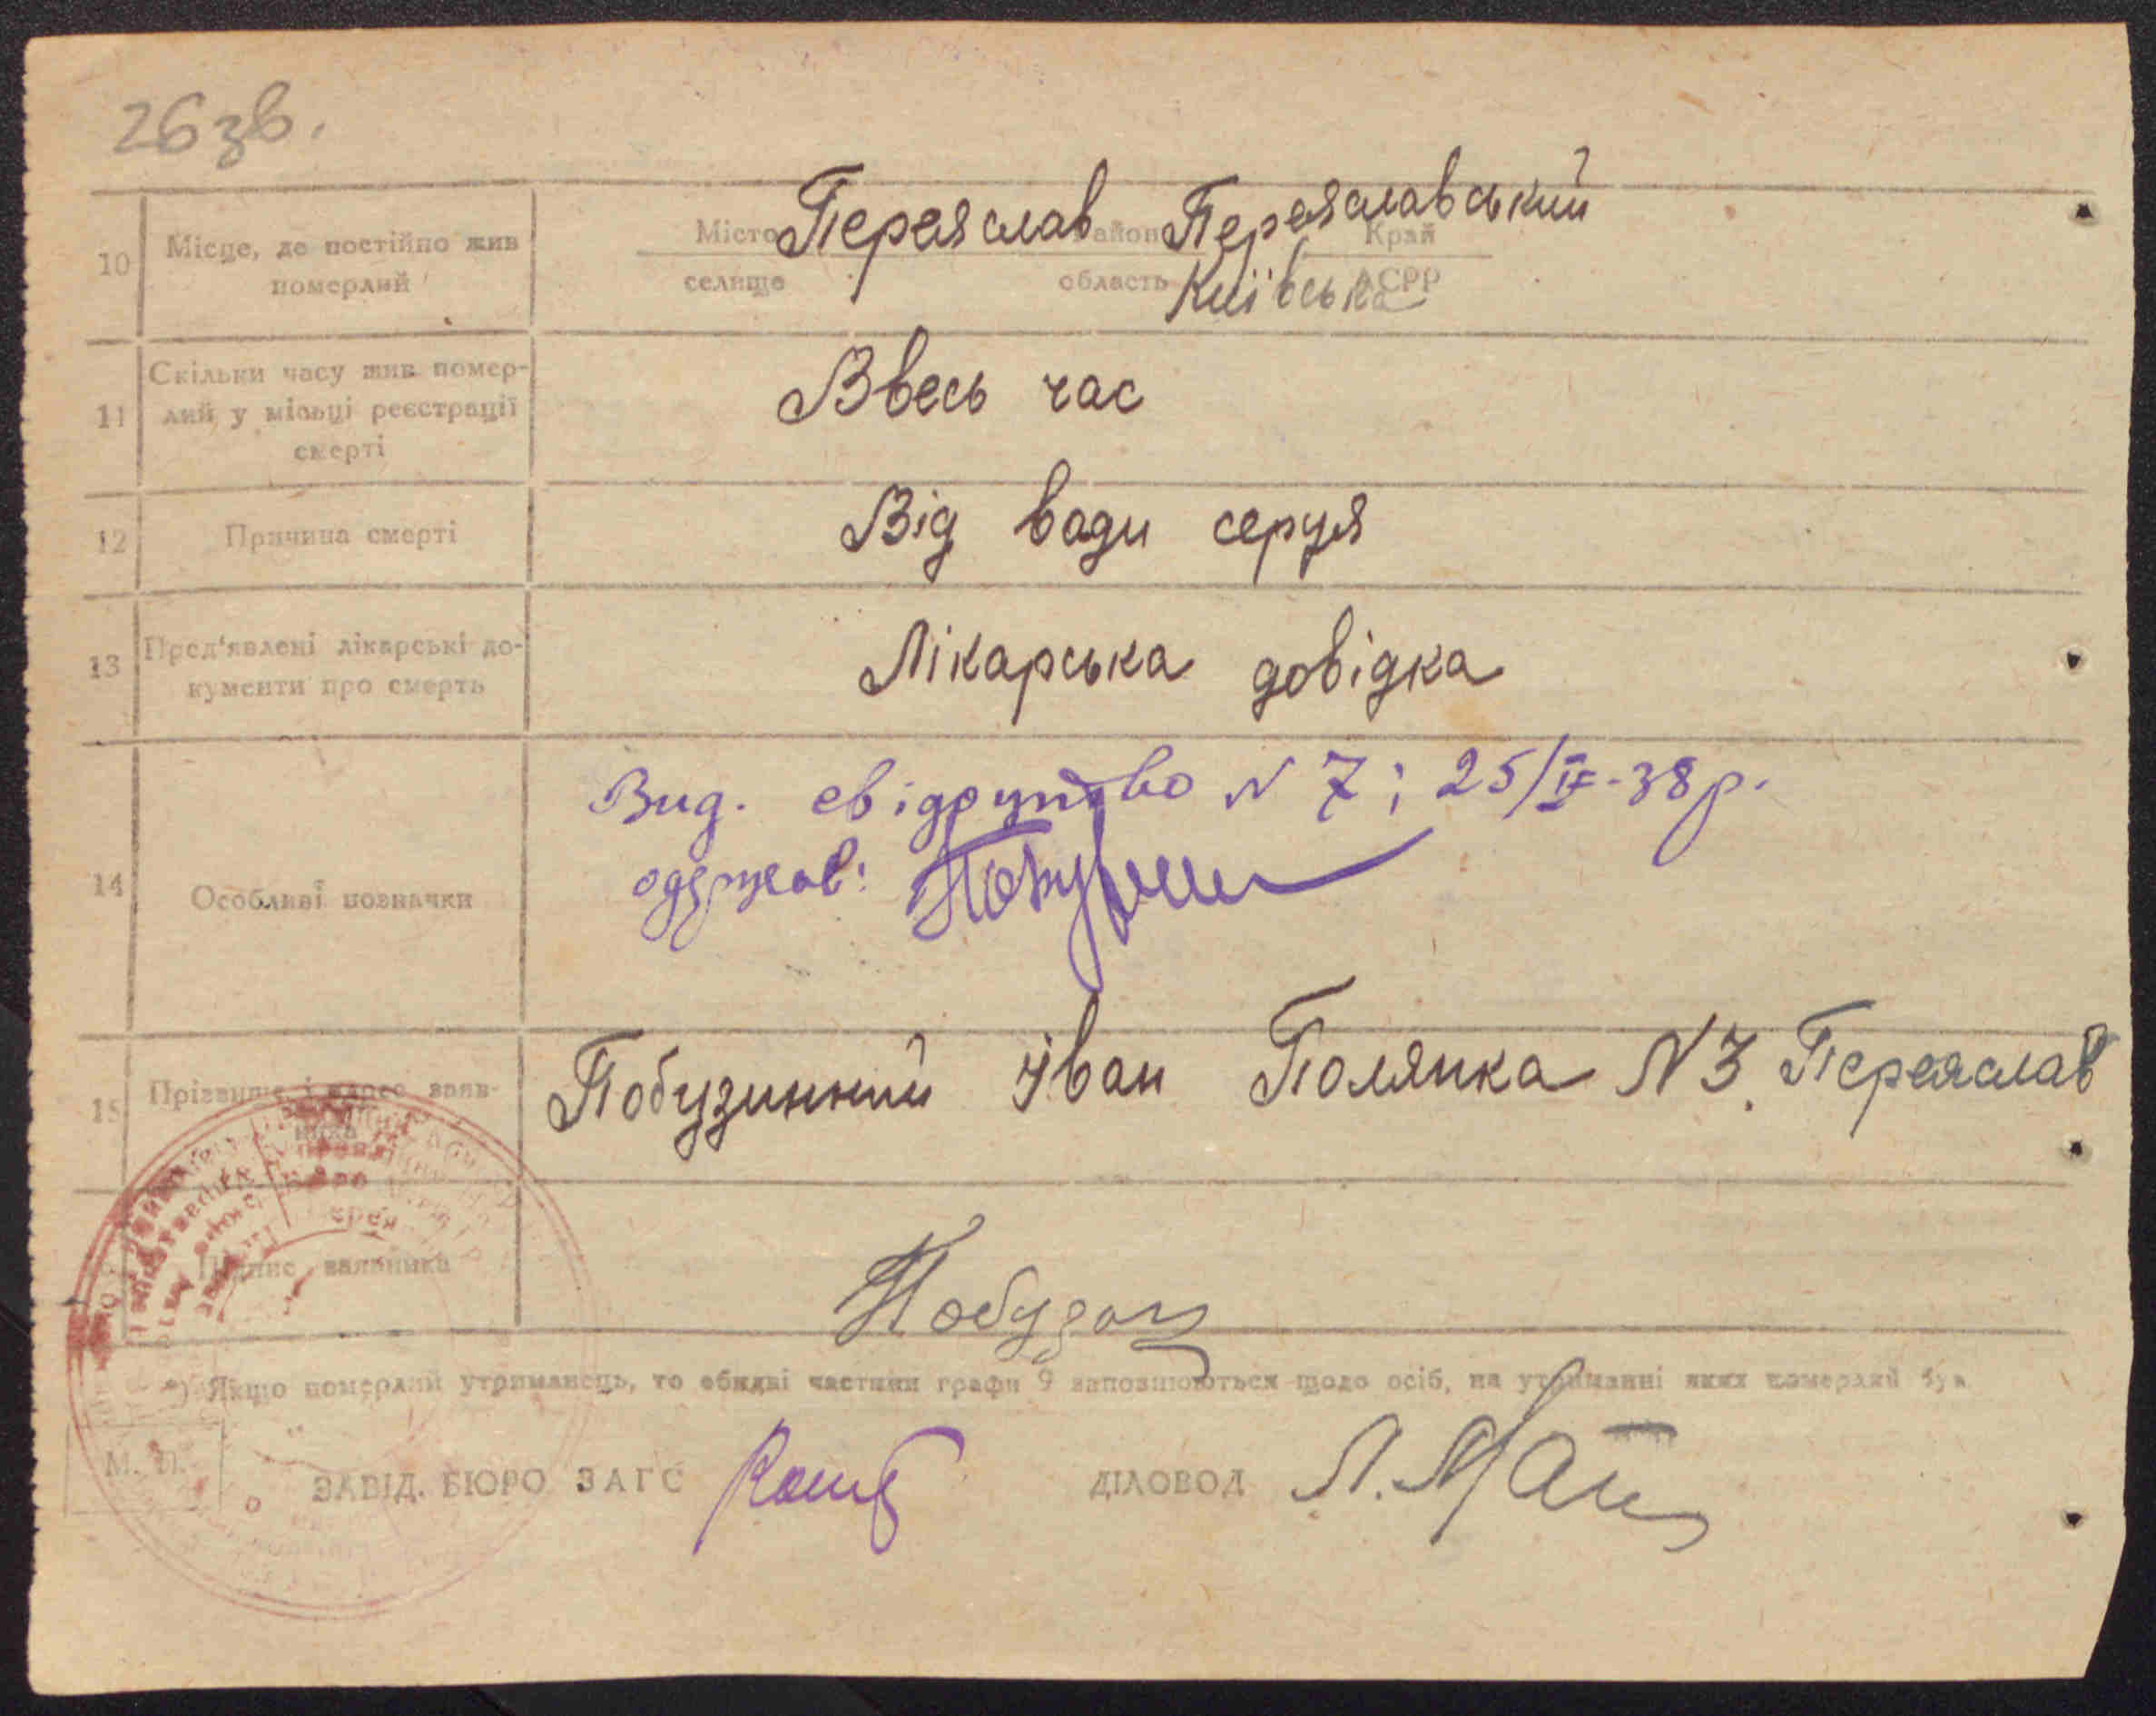 26 зв.
10 Місце, де постійно жив померлий
Місто Переяслав Район Переяславський Край
селище область Київська АСРР
11 Скільки часу жив помер-
лий у місьці реєстрації
смерті
Ввесь час
12 Причина смерті Від вади серця
13 Пред'явлені лікарські до-
кументи про смерть
Лікарська довідка
14 Особливі позначки
Вид. свідоцтво N 7; 25/IV-38р.
одержав:
15 Прізвище і адреса заяв-
ника
Побузинний Іван Полянка N3. Переяслав
Підпис заявника
*) Якщо померлий утриманець, то обидві частини графи 9 заповнюються щодо осіб, на утриманні яких померлий був
М. П.
ЗАВІД. БЮРО ЗАГС ДІЛОВОД